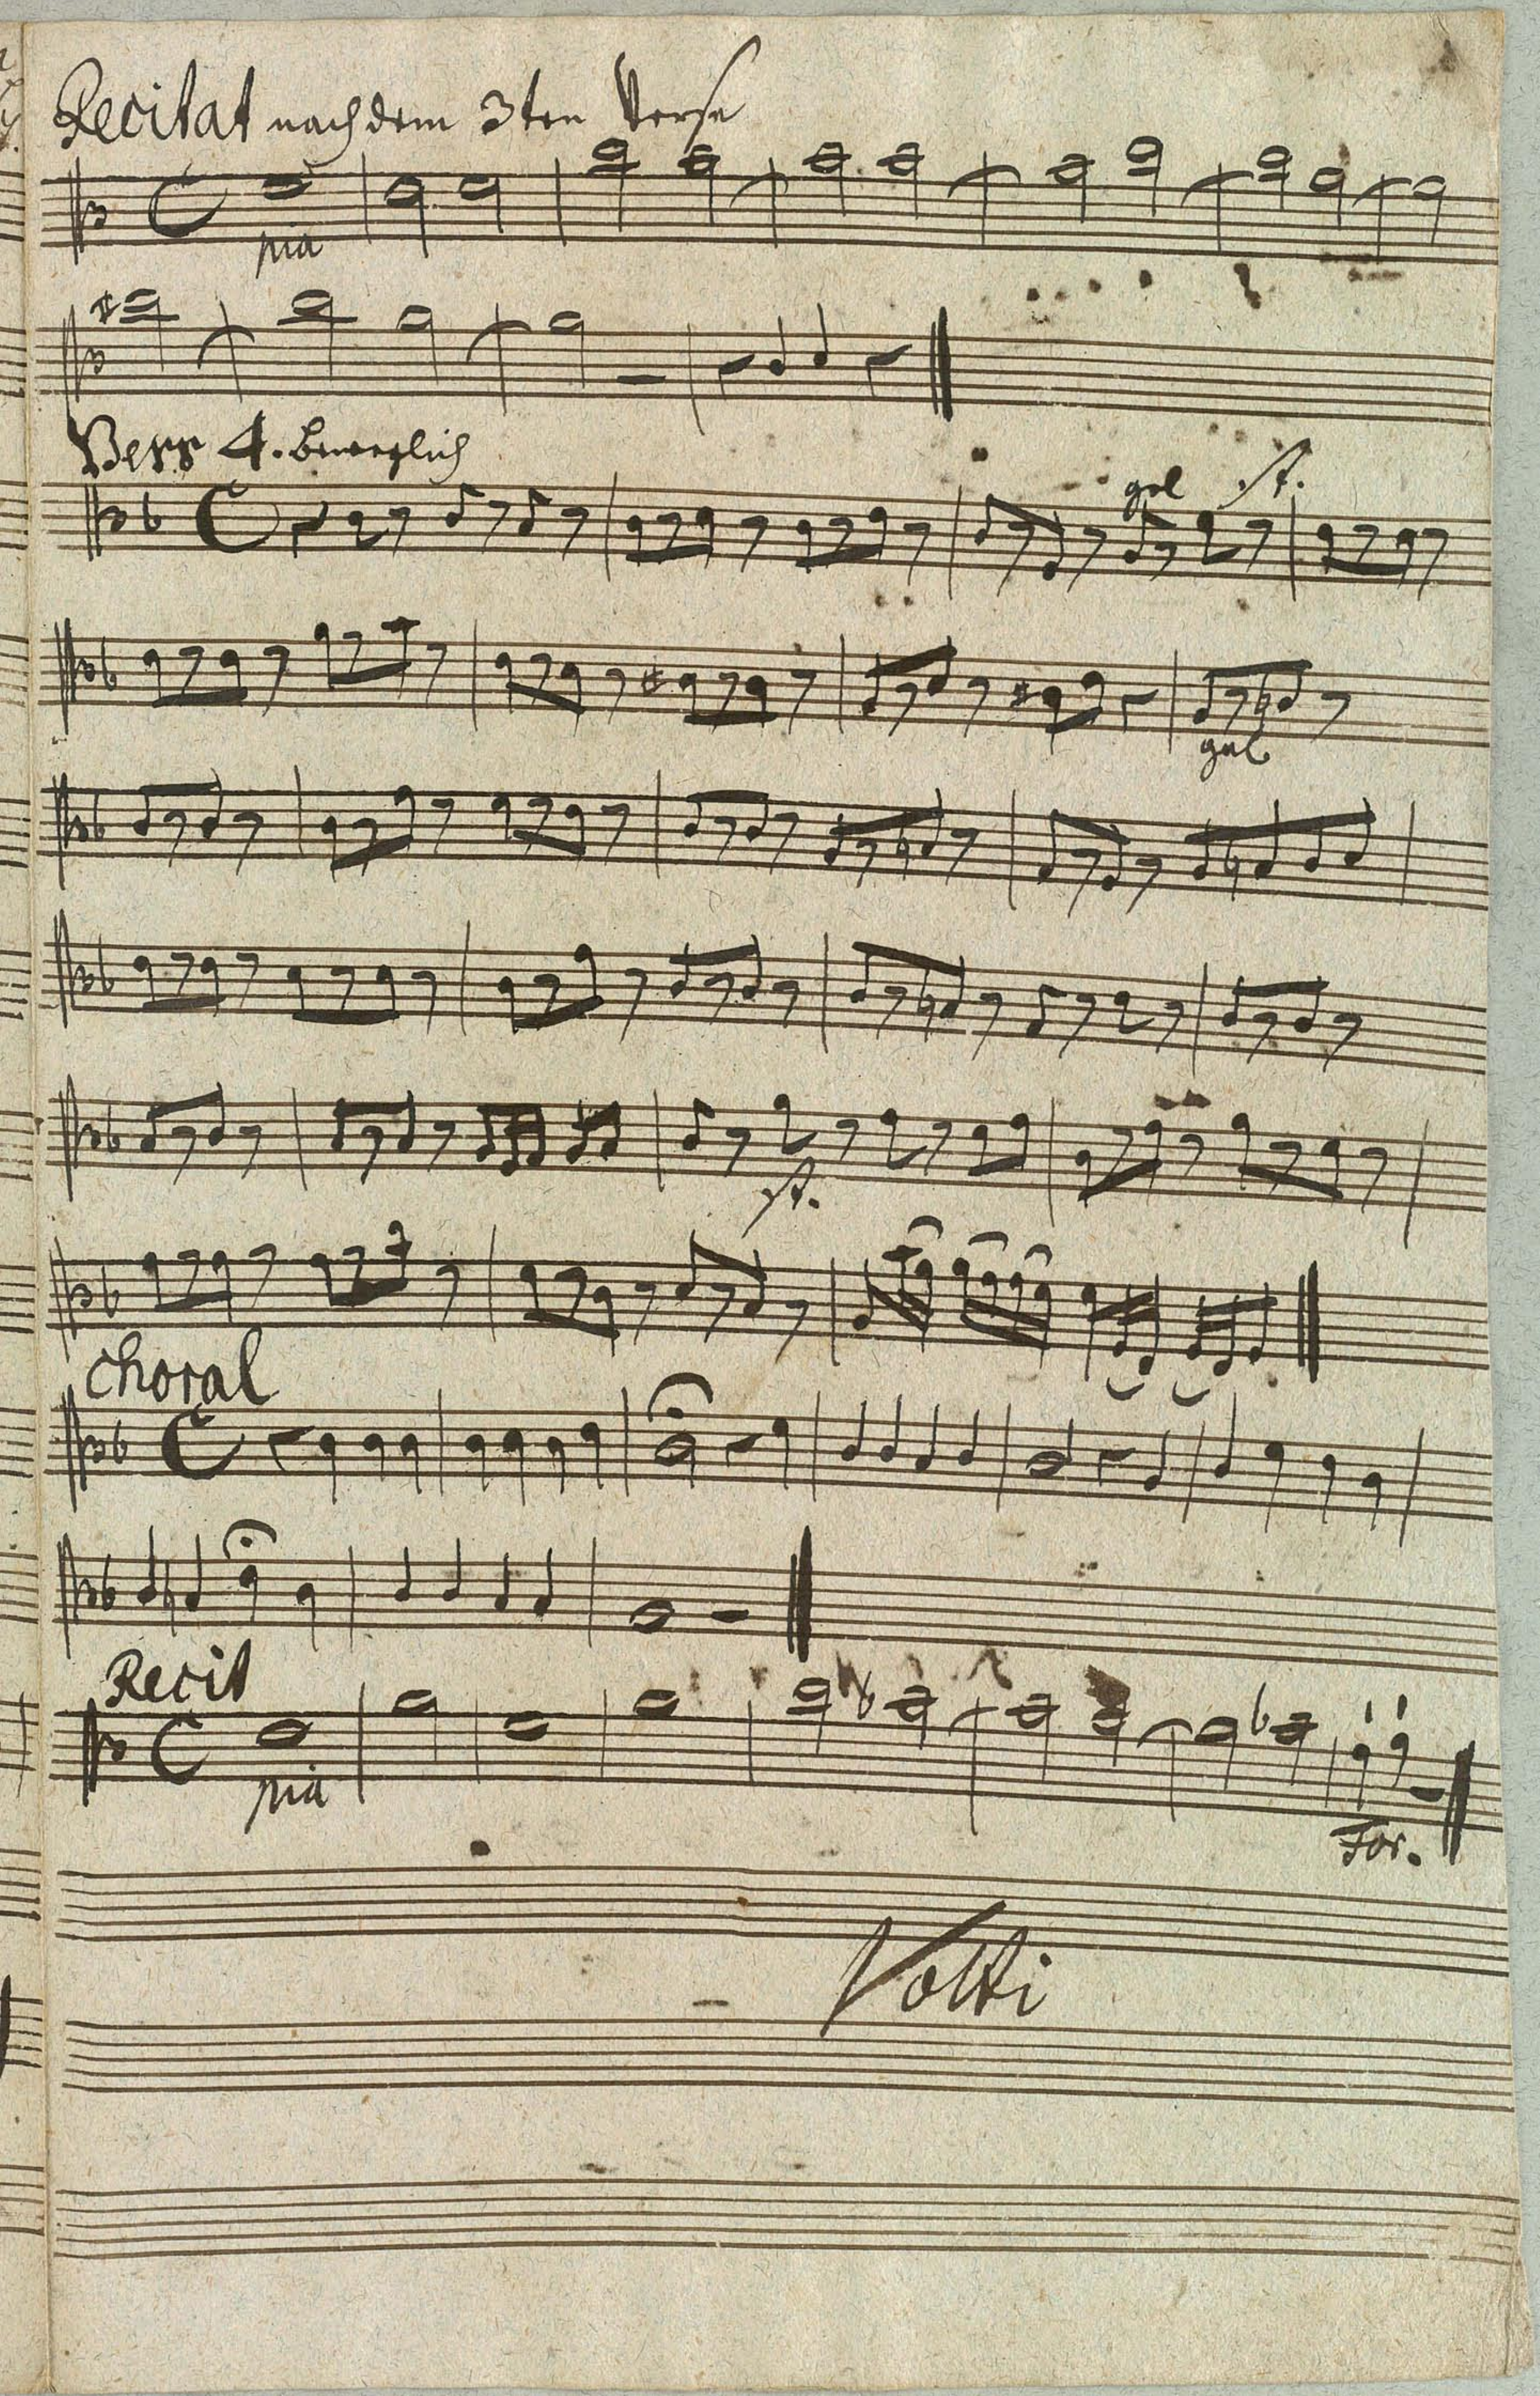 Recitat nach dem 3ten Verse
pia
Vers 4. beweglich
gel st.
gel
st.
Choral
Recit
pia
For.
Volti